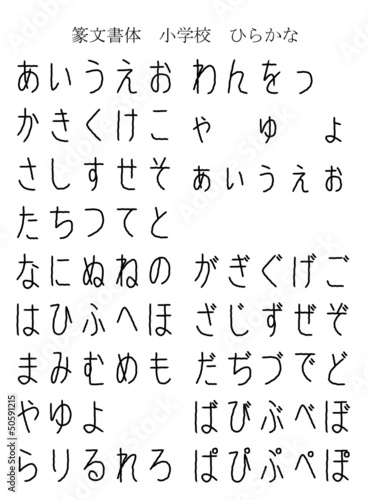 篆文書体　小学校　ひらかな
あいうえお わんをっ
かきくけこ ゃ ゅ ょ
さしすせそ ぁぃぅぇぉ
たちつてと
なにぬねの がぎぐげご
はひふへほ ざじずぜぞ
まみむめも だぢづでど
やゆよ ばびぶべぼ
らりるれろ ぱぴぷぺぽ
Adobe Stock | #50591215